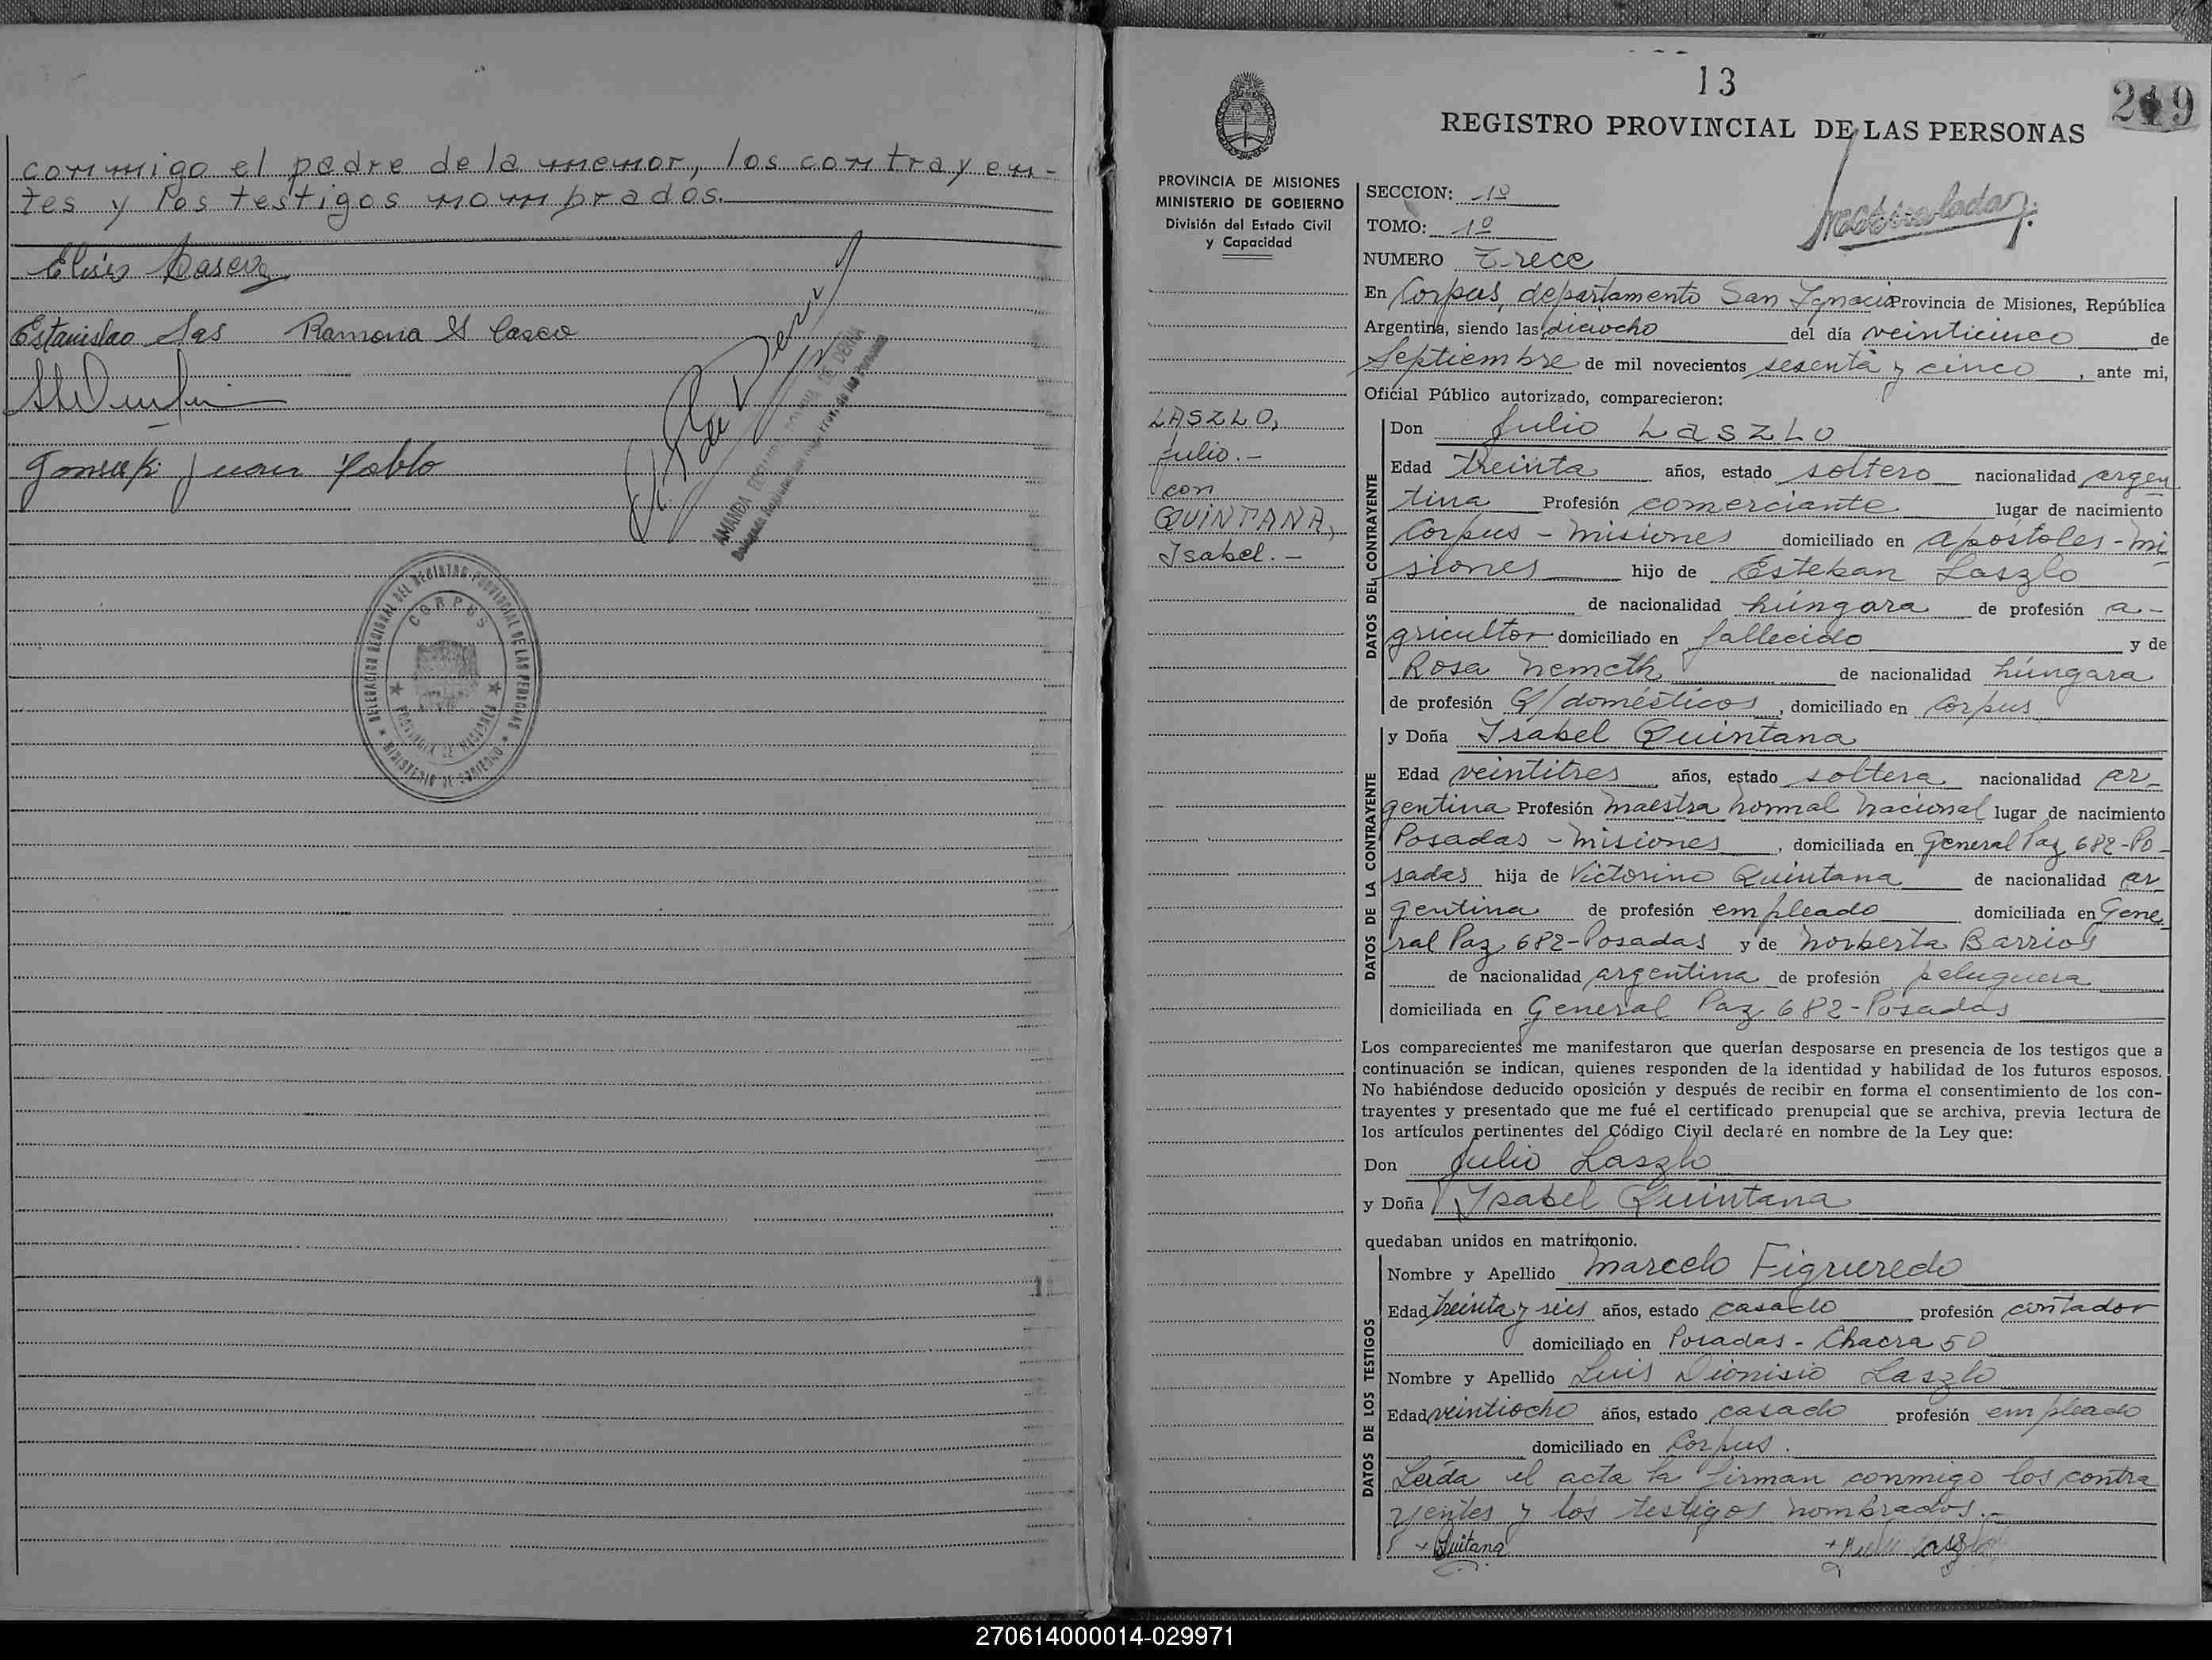 conmigo el padre de la menor, los contrayen-
tes y los testigos nombrados.
Estanislao Sas Ramona G Casco
Juan Pablo
DELEGACION REGIONAL DEL REGISTRO PROVINCIAL DE LAS PERSONAS
CORPUS
PROVINCIA DE MISIONES
MINISTERIO DE GOBIERNO
13
219
REGISTRO PROVINCIAL DE LAS PERSONAS
PROVINCIA DE MISIONES
MINISTERIO DE GOBIERNO
División del Estado Civil
y Capacidad
LASZLO,
Julio.-
con
QUINTANA,
Isabel.-
SECCION: 1º
TOMO: 1º
NUMERO Trece
En Corpus, departamento San Ignacio Provincia de Misiones, República
Argentina, siendo las dieciocho del día veinticinco de
Septiembre de mil novecientos sesenta y cinco, ante mi,
Oficial Público autorizado, comparecieron:
DATOS DEL CONTRAYENTE
Don Julio LASZLO
Edad treinta años, estado soltero nacionalidad argen
tina Profesión comerciante lugar de nacimiento
Corpus - Misiones domiciliado en Apóstoles - Mi
siones hijo de Esteban Laszlo
de nacionalidad húngara de profesión a-
gricultor domiciliado en fallecido y de
Rosa Nemeth de nacionalidad húngara
de profesión Q/domésticos, domiciliado en Corpus
DATOS DE LA CONTRAYENTE
y Doña Isabel Quintana
Edad veintitres años, estado soltera nacionalidad ar-
gentina Profesión Maestra Normal Nacional lugar de nacimiento
Posadas - Misiones, domiciliada en General Paz 682-Po-
sadas hija de Victorino Quintana de nacionalidad ar
gentina de profesión empleado domiciliada en Gene
ral Paz 682-Posadas y de Norberta Barrios
de nacionalidad argentina de profesión peluquera
domiciliada en General Paz 682-Posadas
Los comparecientes me manifestaron que querían desposarse en presencia de los testigos que a
continuación se indican, quienes responden de la identidad y habilidad de los futuros esposos.
No habiéndose deducido oposición y después de recibir en forma el consentimiento de los con-
trayentes y presentado que me fué el certificado prenupcial que se archiva, previa lectura de
los artículos pertinentes del Código Civil declaré en nombre de la Ley que:
Don Julio Laszlo
y Doña Ysabel Quintana
quedaban unidos en matrimonio.
DATOS DE LOS TESTIGOS
Nombre y Apellido Marcelo Figueredo
Edad treinta y seis años, estado casado profesión contador
domiciliado en Posadas - Chacra 50
Nombre y Apellido Luis Dionisio Laszlo
Edad veintiocho años, estado casado profesión empleado
domiciliado en Corpus.
Leída el acta la firman conmigo los contra
yentes y los testigos nombrados.-
270614000014-029971